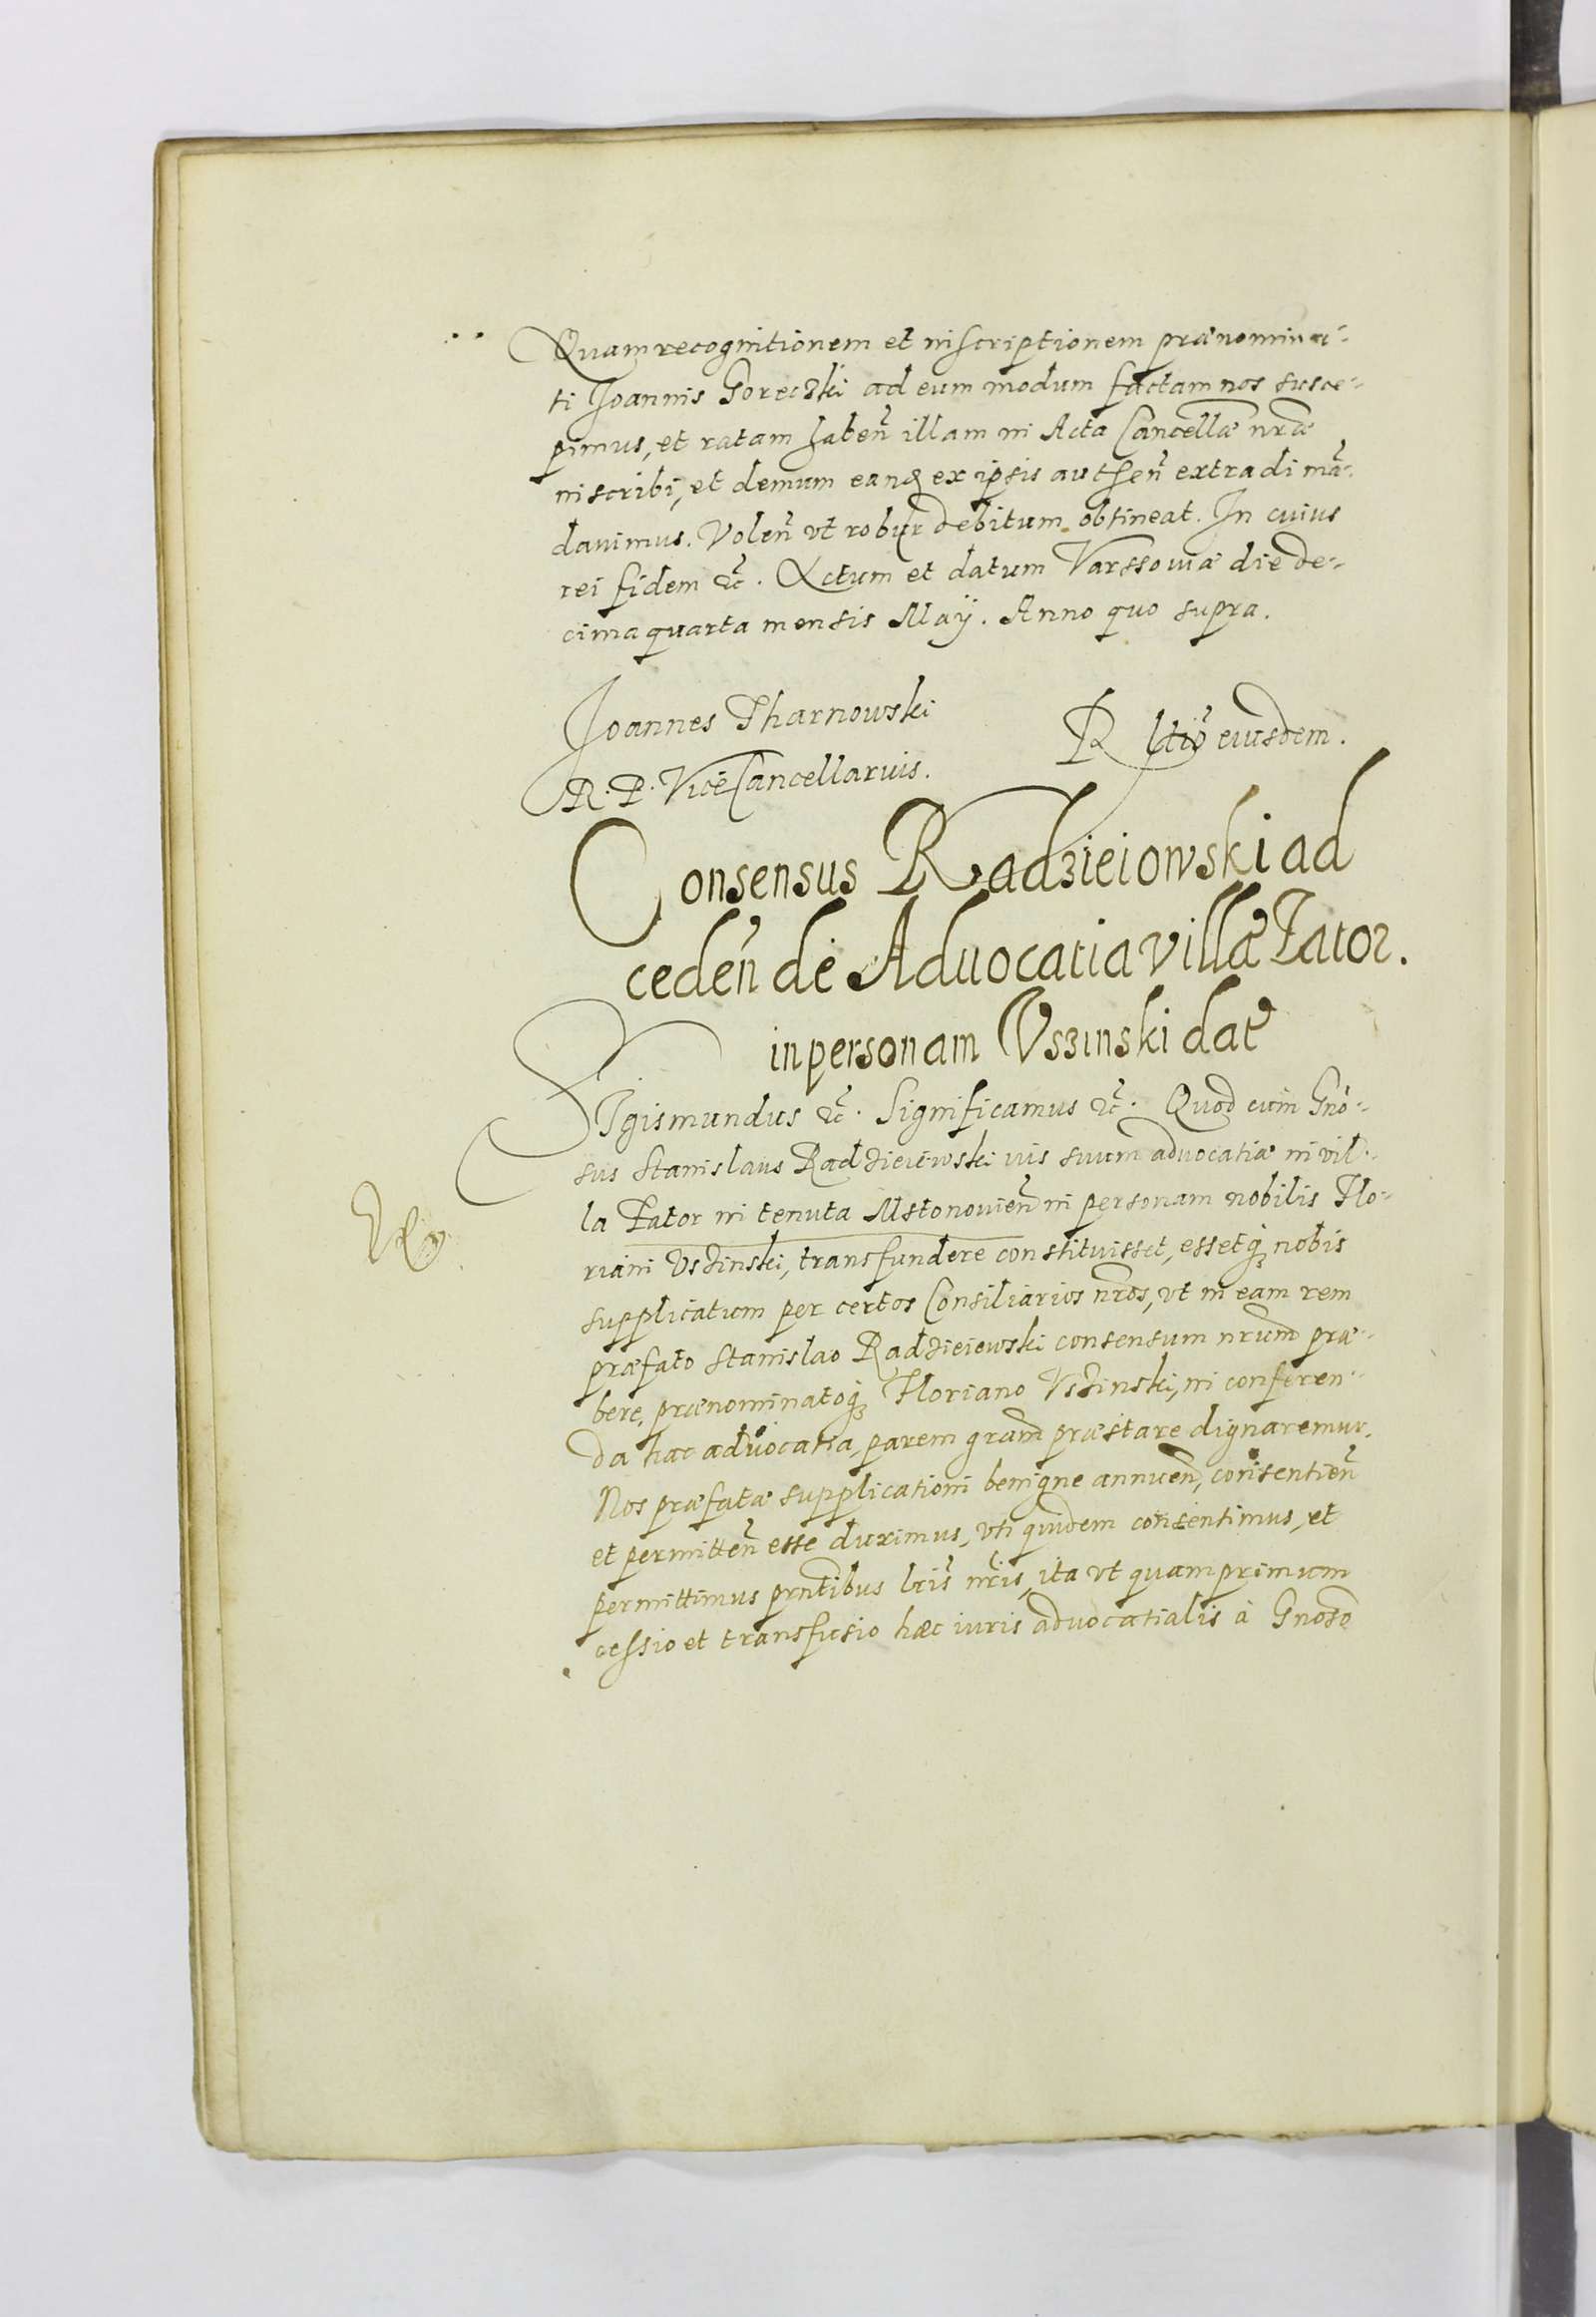 Quam recognitionem et inscriptionem prænomina-
ti Joannis Goreczki ad eum modum factam nos susce-
pimus, et ratam haben̄ illam in Acta Cancellæ nr̄æ
inscribi, et demum eanq ex ipsis authen̄ extradi mā-
davimus. Volen̄ vt robur debitum obtineat. In cuius
rei fidem &c̄. Actum et datum Varssoviæ die de-
cima quarta mensis Maÿ. Anno quo supra.
Joannes Tharnowski
R. P. ViceCancellarius.
R ltio eiusdem.
Consensus Radzieiowski ad
ceden̄ de Aduocatia villæ Tator.
in personam Vszinski dat
SIgismundus &c̄. Significamus &c̄. Quod cum Gnō-
sus Stanislaus Radzieiewski ius suum advocatiæ in vil-
la Tator in tenuta Mstonovien̄ in personam nobilis Flo-
riani Vszinski, transfundere constituisset, essetq̨ nobis
supplicatum per certos Consiliarios nr̄os, vt in eam rem
præfato Stanislao Radzieiewski consensum nr̄um præ-
bere, prænominatoq̨ Floriano Vszinski, in conferen-
da hac advocatia, parem gram̄ præstare dignaremur.
Nos præfatæ supplicationi benigne annuen̄, consentien̄
et permitten̄ esse duximus, vti quidem consentimus, et
permittimus prn̄tibus lr̄is nr̄is, ita vt quamprimum
cessio et transfusio hæc iuris advocatialis à Gnoso